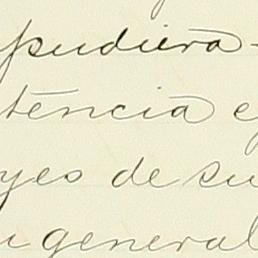 pudiera
tencia e
yes de su
general